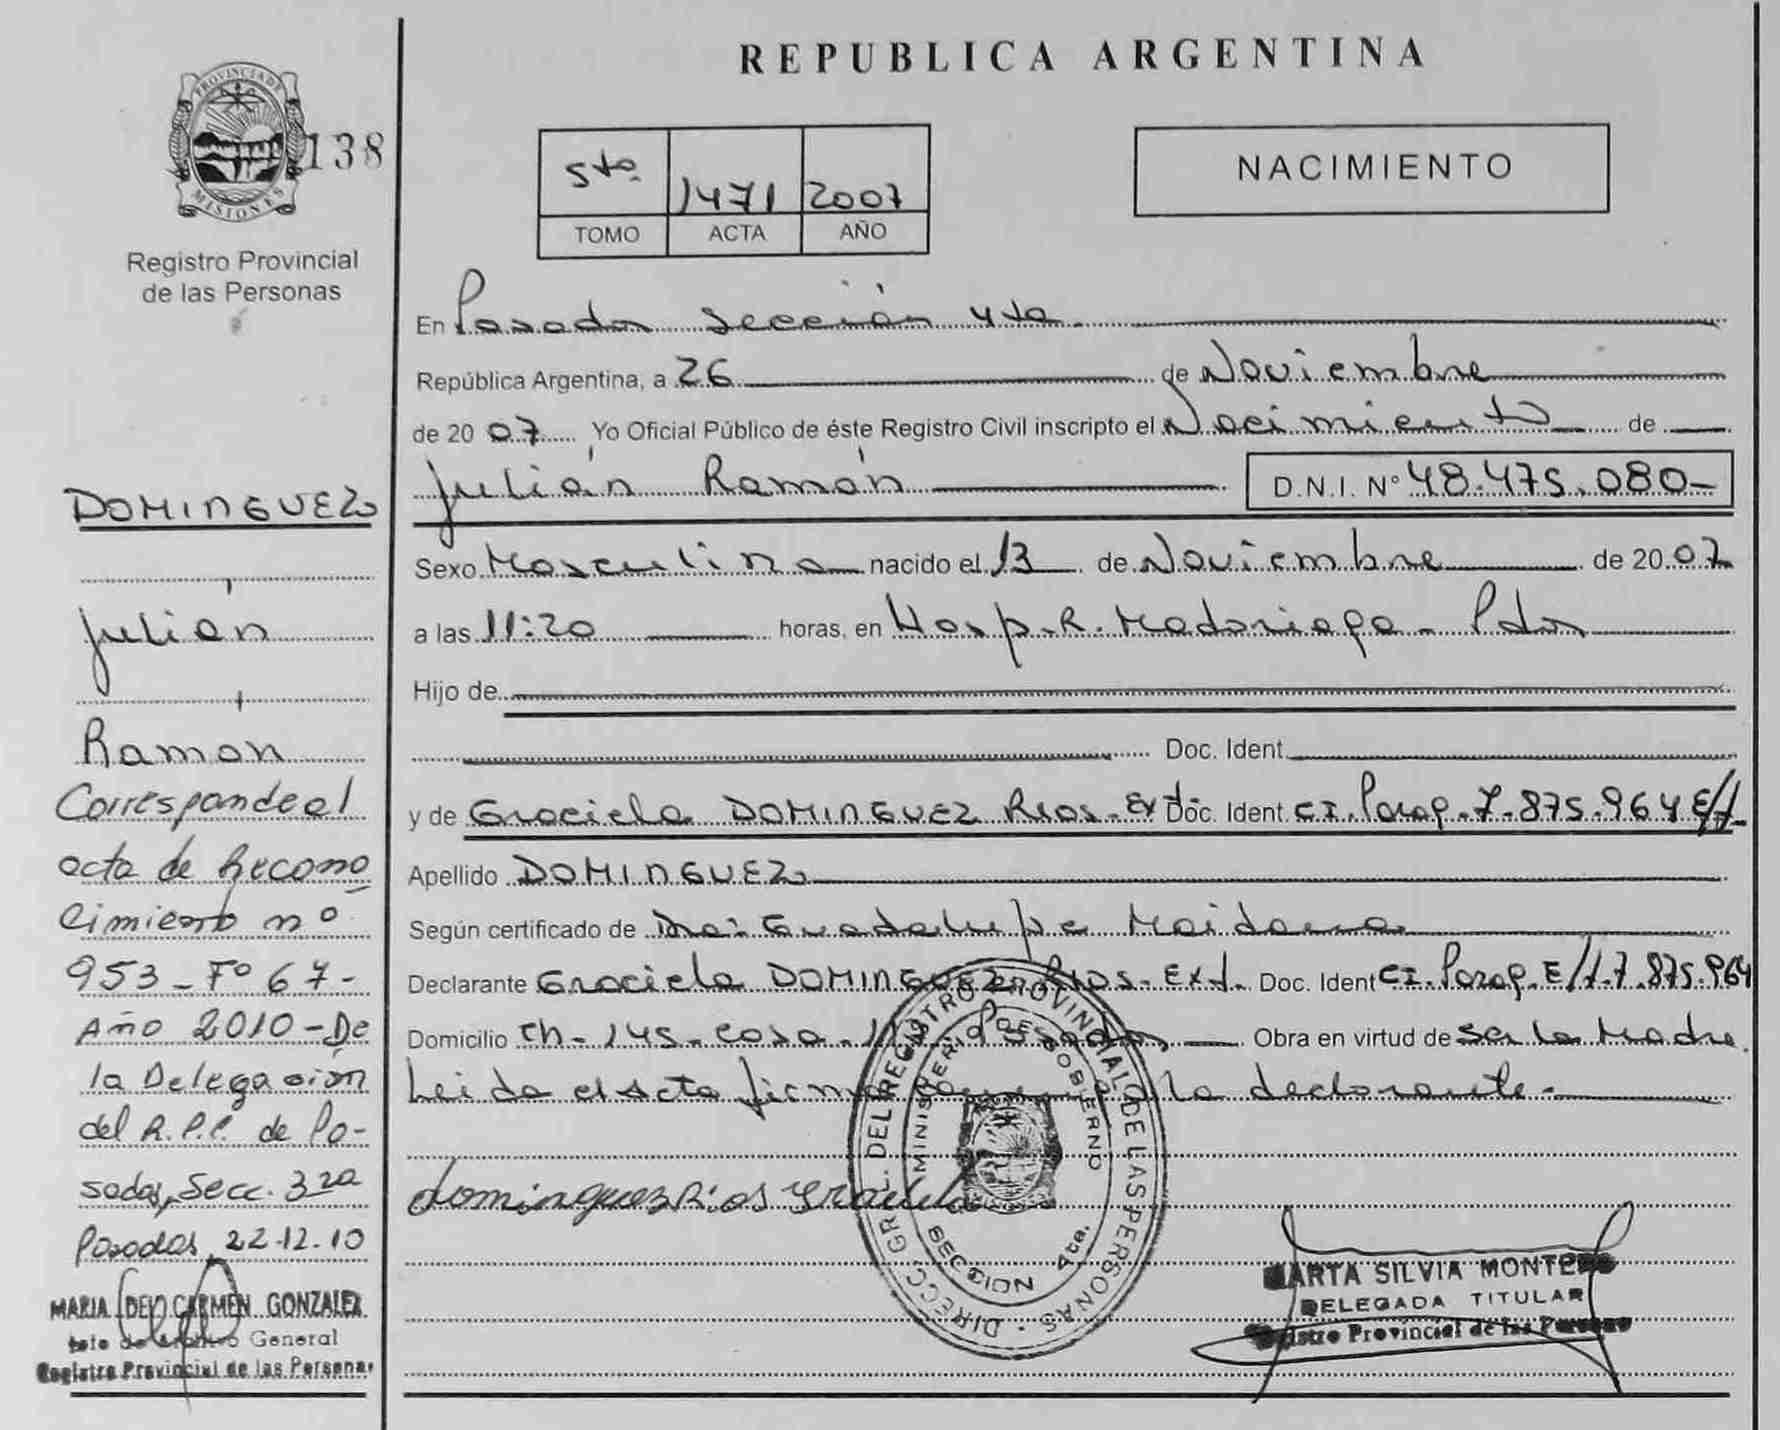 REPUBLICA ARGENTINA
PROVINCIA DE
MISIONES
138
Registro Provincial
de las Personas
5to. 1471 2007
TOMO ACTA AÑO
NACIMIENTO
En Posadas Sección 4ta.
República Argentina, a 26 de Noviembre
de 2007 Yo Oficial Público de éste Registro Civil inscripto el Nacimiento de
Julián Ramón D.N.I. Nº 48.475.080-
Sexo Masculino nacido el 13 de Noviembre de 2007
a las 11:20 horas, en Hosp. R. Madariaga - Pdas
Hijo de
Doc. Ident
y de Graciela DOMINGUEZ Rios - Ext. Doc. Ident CI. Parag. 7.875.964 E/t
Apellido DOMINGUEZ
Según certificado de Dra: Guadalupe Maidana
Declarante Graciela DOMINGUEZ RIOS - Ext. Doc. Ident CI. Parag. E/t 7.875.964
Domicilio Ch - 145 - casa - Posadas Obra en virtud de Ser la Madre.
Leida el Acta firma la declarante -
dominguez Rios Graciela
DIRECC. GRAL. DEL REGISTRO PROVINCIAL DE LAS PERSONAS
MINISTERIO DE GOBIERNO
SECCION 4ta.
MARTA SILVIA MONTERO
DELEGADA TITULAR
Registro Provincial de las Personas
DOMINGUEZ
Julián
Ramon
Corresponde al
acta de Recono
cimiento nº
953 - Fº 67 -
Año 2010 - De
la Delegación
del R.P.P. de Po-
sadas, Secc. 3ra
Posadas, 22-12-10
MARIA DEL CARMEN GONZALEZ
Jefe de Archivo General
Registro Provincial de las Personas